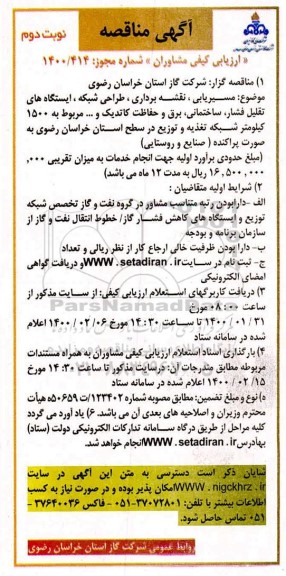 آگهی مناقصه
نوبت دوم
« ارزیابی کیفی مشاوران » شماره مجوز: ۱۴۰۰/۴۱۴
۱) مناقصه گزار: شرکت گاز استان خراسان رضوی
موضوع: مسیریابی ، نقشه برداری ، طراحی شبکه ، ایستگاه های
تقلیل فشار، ساختمانی، برق و حفاظت کاتدیک و ... مربوط به ۱۵۰۰
کیلومتر شبکه تغذیه و توزیع در سطح استان خراسان رضوی به
صورت پراکنده ( صنایع و روستایی)
(مبلغ حدودی برآورد اولیه جهت انجام خدمات به میزان تقریبی ۰۰۰,
۱۶,۵۰۰,۰۰۰ ریال به مدت ۱۲ ماه می باشد)
۲) شرایط اولیه متقاضیان :
الف -دارابودن رتبه متناسب مشاور در گروه نفت و گاز تخصص شبکه
توزیع و ایستگاه های کاهش فشار گاز/ خطوط انتقال نفت و گاز از
سازمان برنامه و بودجه
ب- دارابودن ظرفیت خالی ارجاع کار از نظر ریالی و تعداد
ج- ثبت نام در سایت WWW . setadiran . ir و دریافت گواهی
امضای الکترونیکی
۳) دریافت کاربرگهای استعلام ارزیابی کیفی: از سایت مذکور از
ساعت ۰۸:۰۰ مورخ
۱۴۰۰ / ۰۱ / ۳۱ تا ساعت ۱۴:۳۰ مورخ ۰۶ / ۰۲ / ۱۴۰۰ اعلام
شده در سامانه ستاد
۴) بارگذاری اسناد استعلام ارزیابی کیفی مشاوران به همراه مستندات
مربوطه مطابق مندرجات آن: در سایت مذکور تا ساعت ۱۴:۳۰ مورخ
۱۵ / ۰۲ / ۱۴۰۰ اعلام شده در سامانه ستاد
۵) نوع و مبلغ تضمین: مطابق مصوبه شماره ۱۲۳۴۰۲/ت۵۰۶۵۹ه هیأت
محترم وزیران و اصلاحیه های بعدی آن می باشد. ۶) یاد آوری می گردد
کلیه مراحل از طریق درگاه سامانه تدارکات الکترونیکی دولت (ستاد)
بهآدرس WWW . setadiran . ir انجام خواهد شد.
شایان ذکر است دسترسی به متن این آگهی در سایت
WWW . nigckhrz . ir امکان پذیر بوده و در صورت نیاز به کسب
اطلاعات بیشتر با تلفن: ۳۷۰۷۲۸۰۱-۰۵۱ - فاکس ۳۷۶۴۰۰۳۶ -
۰۵۱ تماس حاصل شود.
روابط عمومی شرکت گاز استان خراسان رضوی